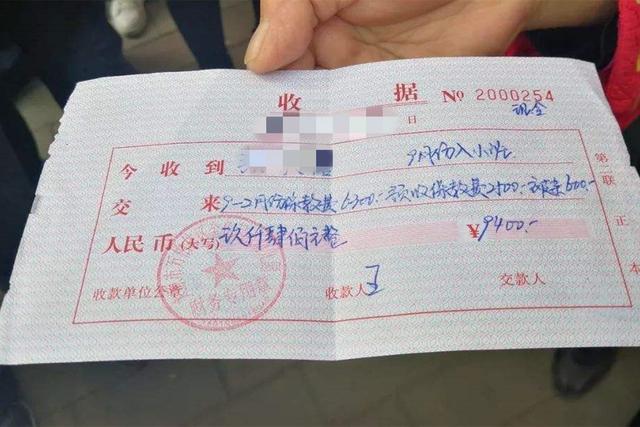 收 据 № 2000254
日 现金
今 收 到 9月份入小班
交 来 9-2月保教费6300.- 预收保教费2500.- 600.-
人民币(大写) 玖仟肆佰元整 ¥9400.-
收款单位公章 收款人 王 交款人
财务专用章
第二联 正